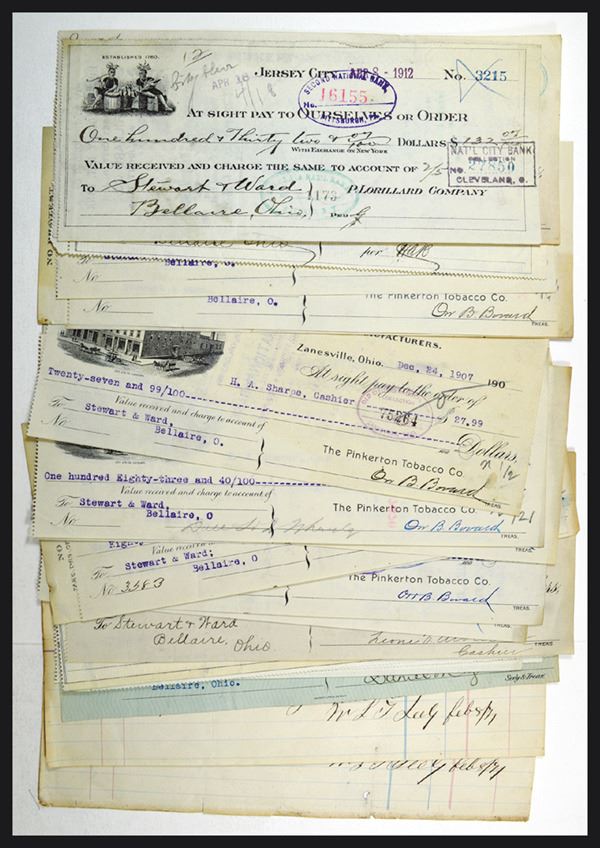 ESTABLISHED 1760.
12
JERSEY CITY APR 8 - 1912 No. 3215
APR 18
4/18
SECOND NATIONAL BANK,
No. 16155
PITTSBURGH, PA.
AT SIGHT PAY TO OURSELVES OR ORDER
One hundred & Thirty two & 07/100 DOLLARS $132 07
WITH EXCHANGE ON NEW YORK
NAT'L CITY BANK
COLLECTION
No. 27850
CLEVELAND, O.
VALUE RECEIVED AND CHARGE THE SAME TO ACCOUNT OF 2/5
TO Stewart & Ward P. LORILLARD COMPANY
1173
Bellaire, Ohio, PER
Bellaire Ohio per
To Bellaire, O.
No
Bellaire, O. The Pinkerton Tobacco Co.
No Orr B Bovard
TREAS.
MANUFACTURERS.
Zanesville, Ohio. Dec. 24, 1907 190
At sight pay to the order of
H. A. Sharpe, Cashier $ 27.99
75264
Twenty-seven and 99/100 Dollars,
Value received and charge to account of
To Stewart & Ward, The Pinkerton Tobacco Co.
Bellaire, O.
No Orr B Bovard
TREAS.
One hundred Eighty-three and 40/100
Value received and charge to account of
To Stewart & Ward, The Pinkerton Tobacco Co.
Bellaire, O
No Orr B Bovard
TREAS.
Eighty
Value received
To Stewart & Ward; The Pinkerton Tobacco Co.
Bellaire, O
No 3583 Orr B Bovard
TREAS.
To Stewart & Ward
Bellaire, Ohio
Cashier
Bellaire, Ohio. Secy & Treas.
feb 8/71
feb 8/71